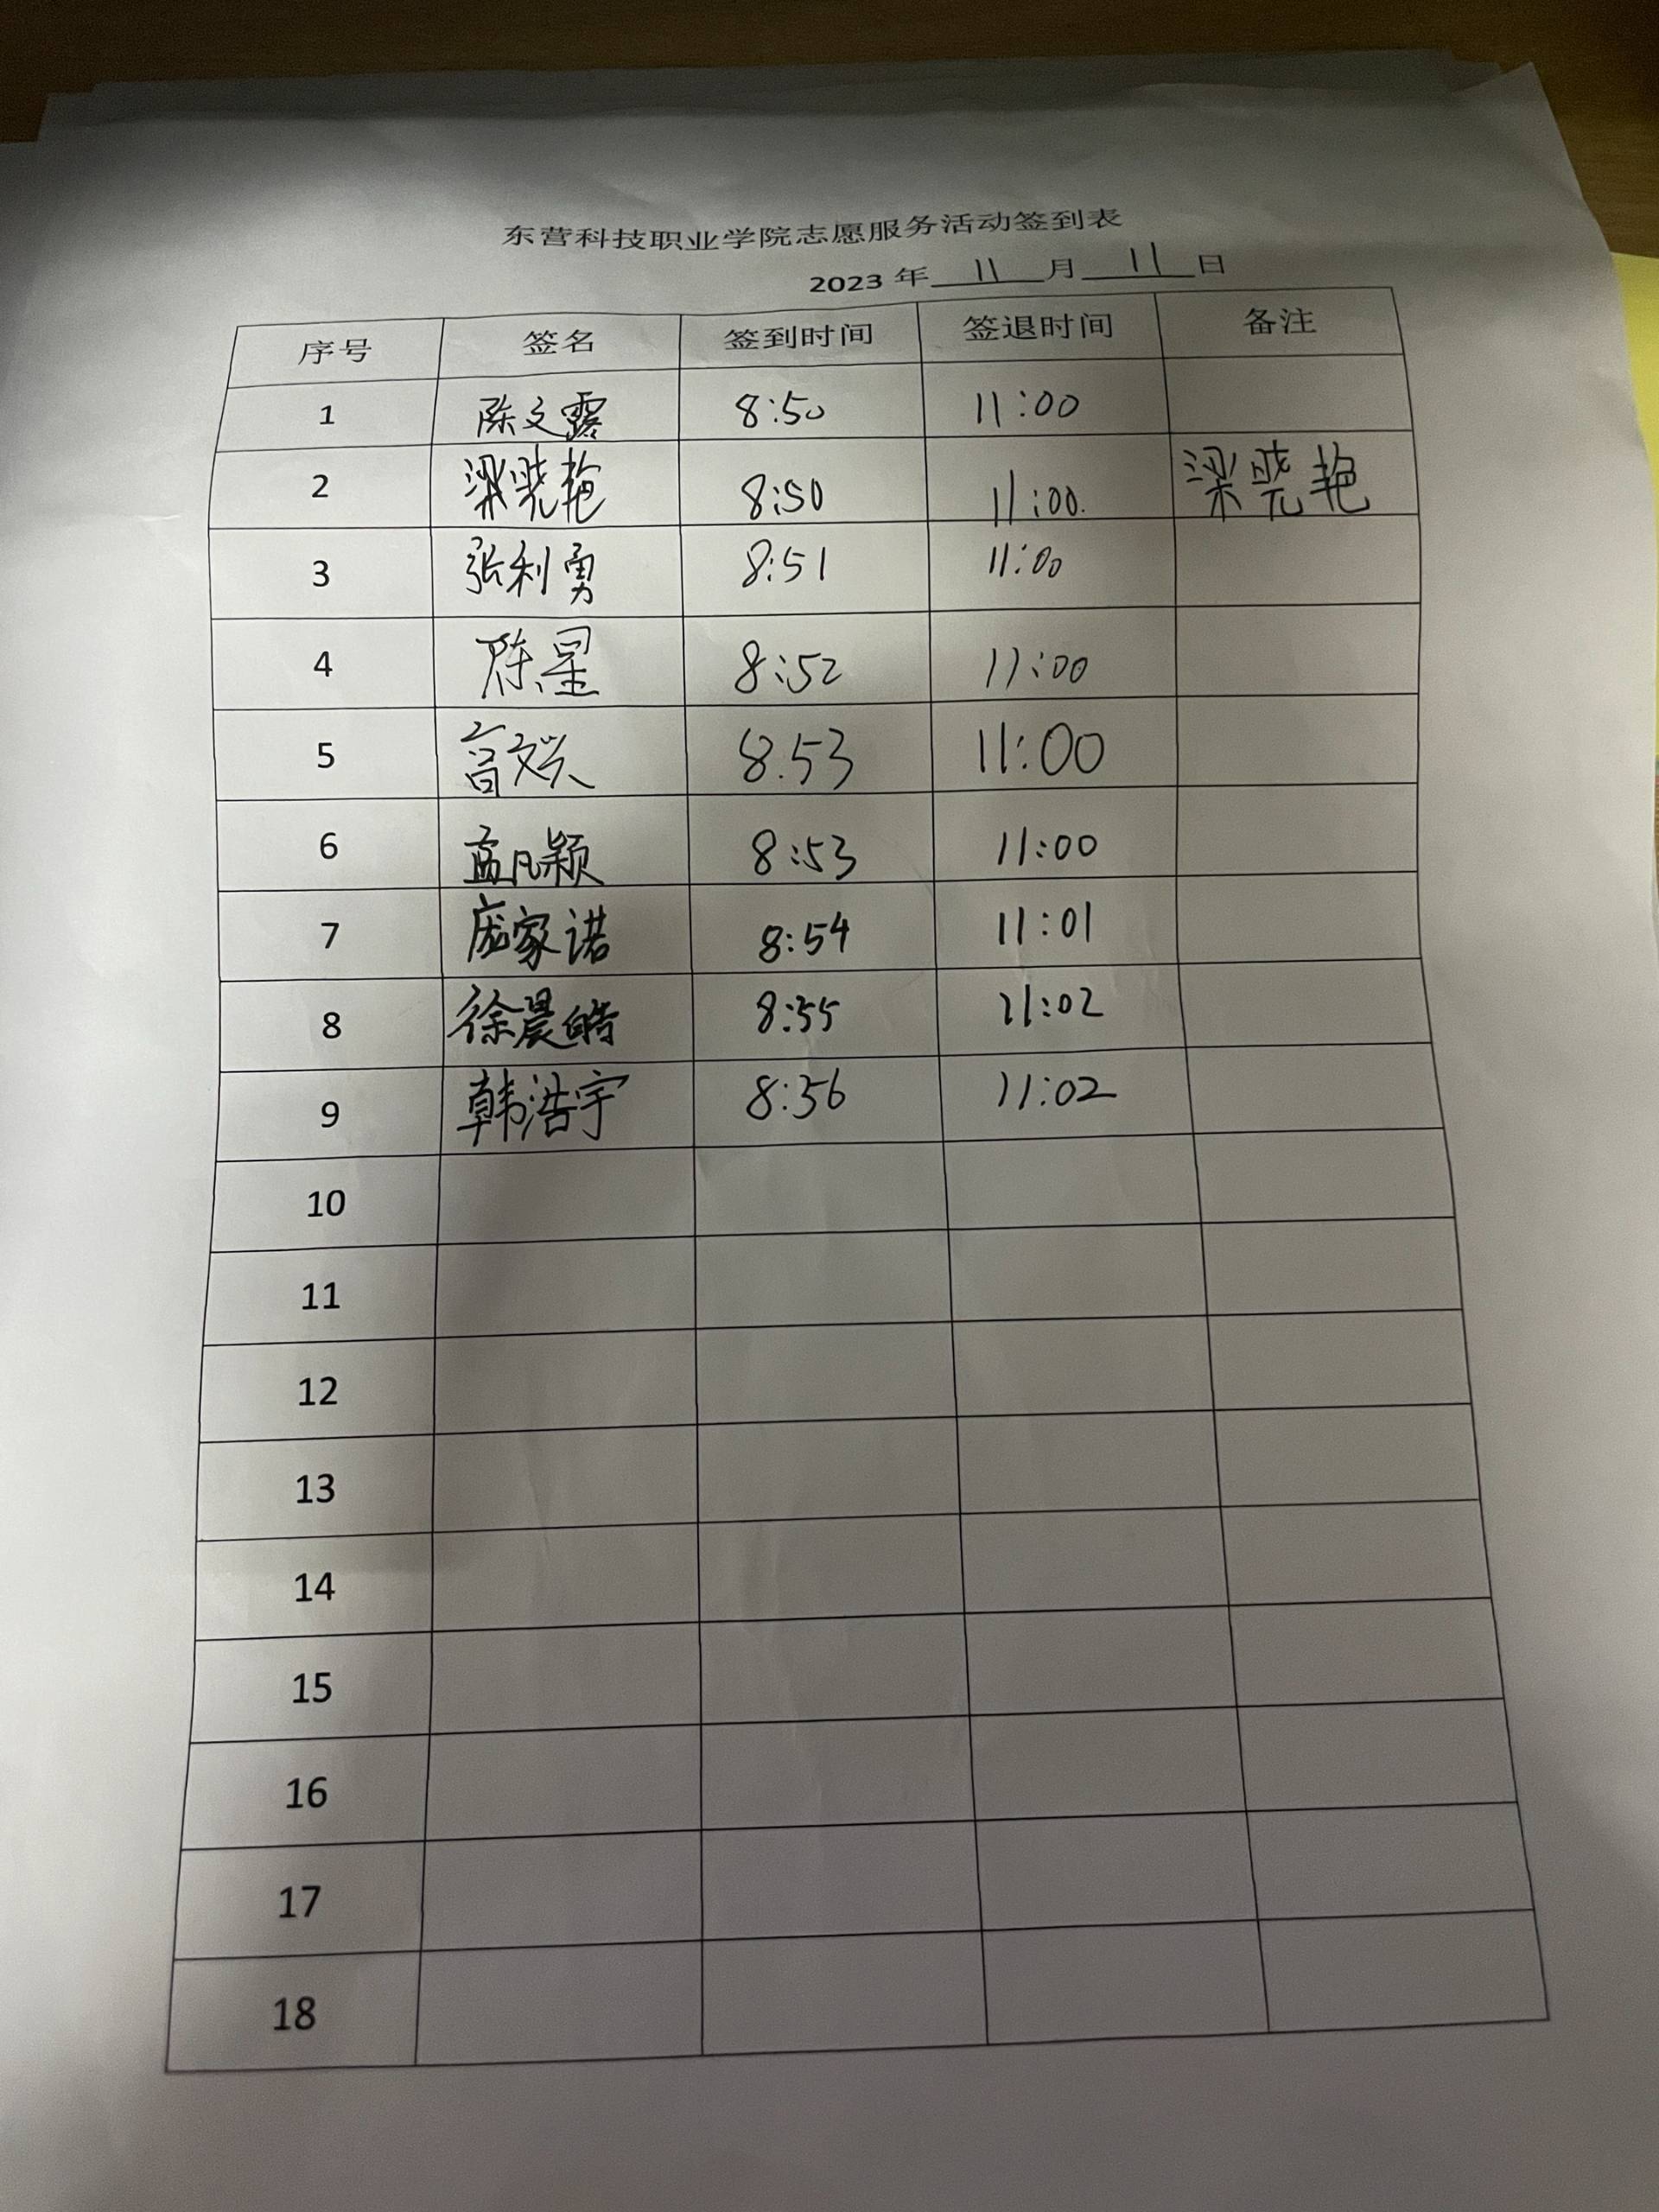 东营科技职业学院志愿服务活动签到表
2023 年 11 月 11 日
序号 签名 签到时间 签退时间 备注
1 陈文露 8:50 11:00
2 梁晓艳 8:50 11:00. 梁晓艳
3 张利勇 8:51 11:00
4 陈星 8:52 11:00
5 8.53 11:00
6 孟凡颖 8:53 11:00
7 庞家诺 8:54 11:01
8 徐晨皓 8:55 11:02
9 韩浩宇 8:56 11:02
10
11
12
13
14
15
16
17
18